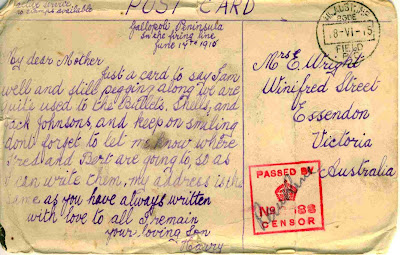 POST CARD
Active Service
no stamps available
Gallopole Peninsula
in the firing line
June 15th 1915
My dear Mother
Just a card to say I am
well and still pegging along Wot are
quite used to the Bullets, Shells, and
Jack Johnsons, and keep on smiling
dont forget to let me know where
Fred and Bert are going to, so as
I can write them, my address is the
same as you have always written
with love to all I remain
your loving Son
Harry
8-VI-15
FIELD
Mrs E Wright
Winifred Street
Essendon
Victoria
Australia
PASSED BY
No 188
CENSOR